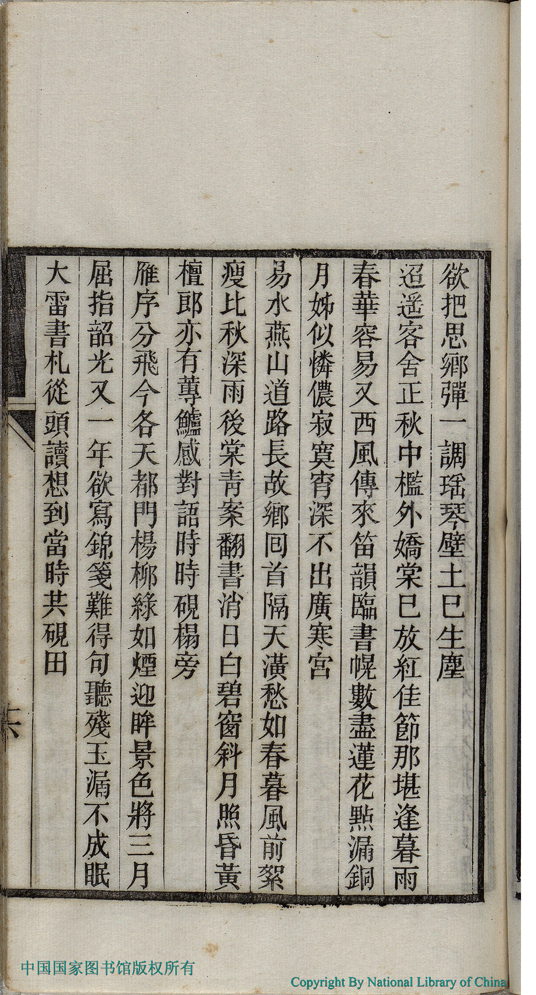 欲把思鄉彈一調瑶琴壁土巳生塵
迢遥客舍正秋中檻外嬌棠巳放紅佳節那堪逢暮雨
春華容易又西風傳來笛韻臨書幌數盡蓮花㸃漏銅
月姊似憐儂寂寞宵深不出廣寒宮
易水燕山道路長故鄉囘首隔天潢愁如春暮風前絮
瘦比秋深雨後棠青案翻書消日白碧窗斜月照昏黃
檀郎亦有蓴鱸感對語時時硯榻旁
雁序分飛今各天都門楊栁綠如煙迎眸景色將三月
屈指韶光又一年欲寫錦箋難得句聽殘玉漏不成眠
大雷書札從頭讀想到當時共硯田
六
中国国家图书馆版权所有
Copyright By National Library of China